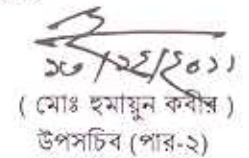 ১৩/১২/২০১১
( মোঃ হুমায়ুন কবীর )
উপসচিব (পার-২)